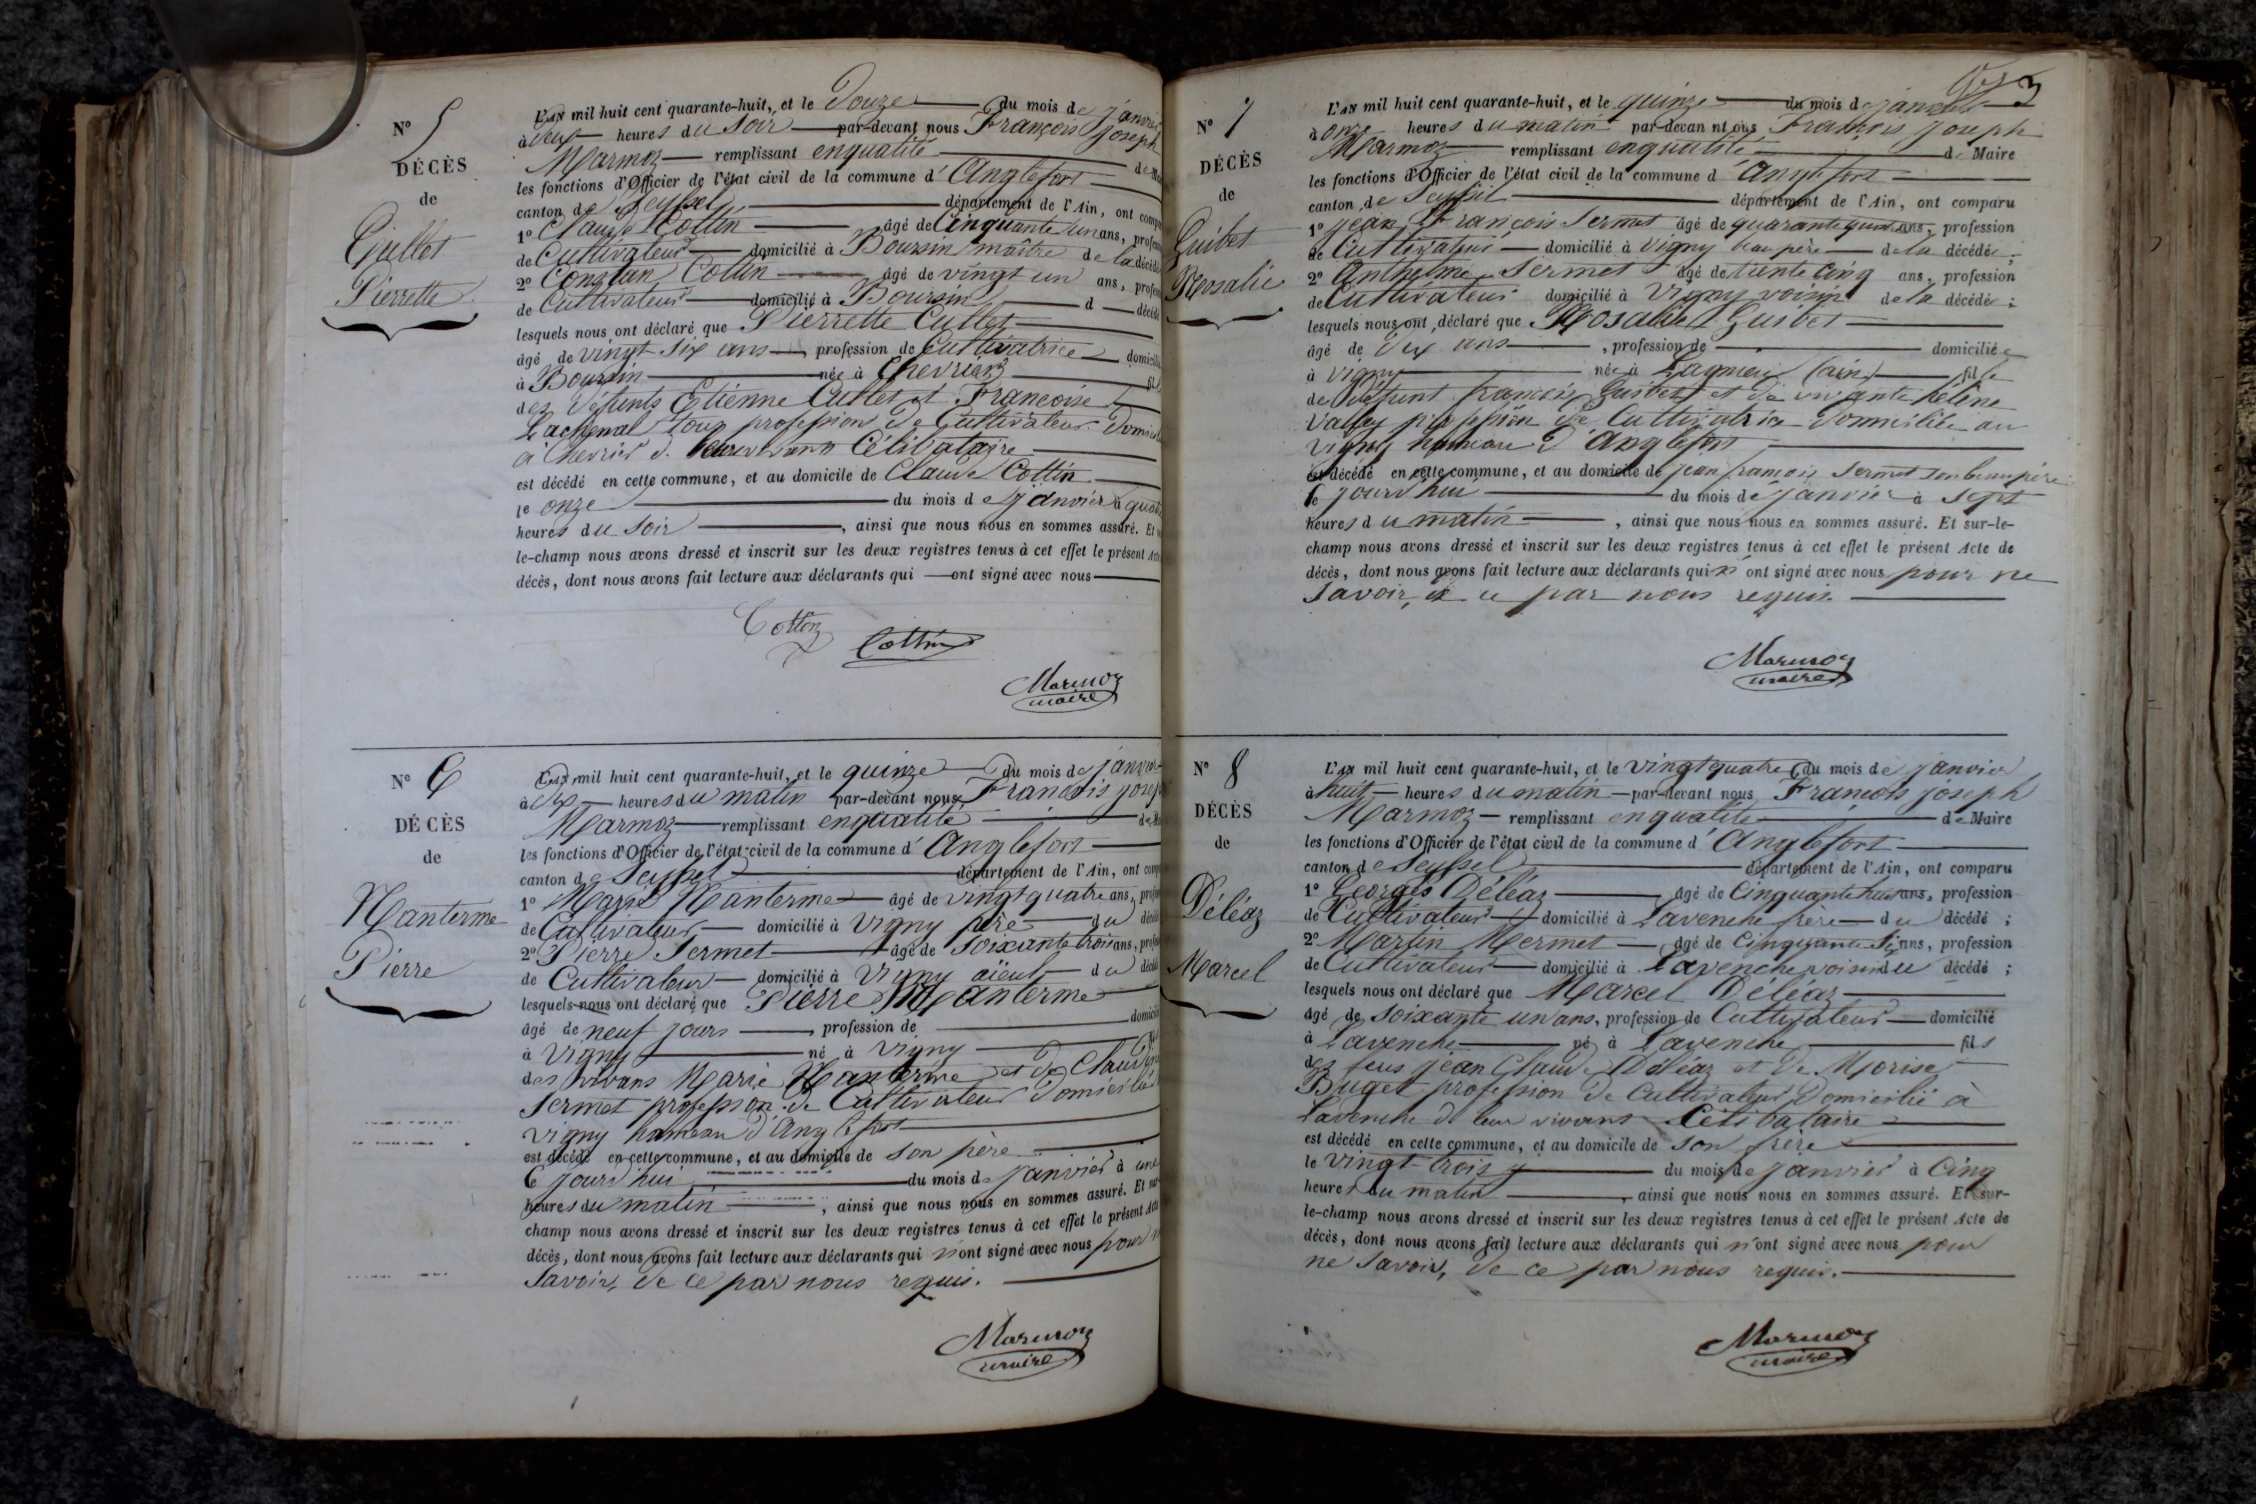 N° 5
DÉCÈS
de
Cullet
Pierrette
L'AN mil huit cent quarante-huit, et le Douze du mois de janvier
à heures du soir par-devant nous François joseph
Marmoz remplissant en qualité de
les fonctions d'Officier de l'état civil de la commune d'Anglefort
canton de Seyssel département de l'Ain, ont
1° Claude Cottin âgé de Cinquante un ans,
de Cultivateur domicilié à Boursin maître de la décédé
2° Constan Cottin âgé de vingt un ans,
de Cultivateur domicilié à Boursin d décédé
lesquels nous ont déclaré que Pierrette Cullet
âgé de vingt six ans, profession de Cultivatrice
à Boursin née à Chevrier
des défunts Etienne Cullet et Françoise
Lachenal tous profession de Cultivateur
à Chevrier de leurs vivans Célibataire
est décédé en cette commune, et au domicile de Claude Cottin
le onze du mois de janvier à
heures du soir, ainsi que nous nous en sommes assuré. Et
le-champ nous avons dressé et inscrit sur les deux registres tenus à cet effet le présent Acte
décès, dont nous avons fait lecture aux déclarants qui ont signé avec nous
Cottin
Cottin
Marmoz
maire
N° 6
DÉCÈS
de
Nanterme
Pierre
L'AN mil huit cent quarante-huit, et le quinze du mois de janvier
à dix heures du matin par-devant nous François joseph
Marmoz remplissant en qualité
les fonctions d'Officier de l'état civil de la commune d'Anglefort
canton de Seyssel département de l'Ain, ont
1° Marie Nanterme âgé de vingt quatre ans,
de Cultivateur domicilié à Vigny père du
2° Pierre Sermet âgé de soixante trois ans,
de Cultivateur domicilié à Vigny aïeul du
lesquels nous ont déclaré que Pierre Nanterme
âgé de neuf jours, profession de
à Vigny né à Vigny
des vivans Marie Nanterme et de
Sermet profession de Cultivateur Domiciliés
Vigny hameau d'Anglefort
est décédé en cette commune, et au domicile de son père
Ce jourd'hui du mois de janvier à une
heures du matin, ainsi que nous nous en sommes assuré. Et
champ nous avons dressé et inscrit sur les deux registres tenus à cet effet le présent Acte
décès, dont nous avons fait lecture aux déclarants qui n'ont signé avec nous pour
Savoir, de ce par nous requis.
Marmoz
maire
3
N° 7
DÉCÈS
de
Guibet
Rosalie
L'AN mil huit cent quarante-huit, et le quinze du mois de janvier
à onze heures du matin par-devant nous François joseph
Marmoz remplissant en qualité de Maire
les fonctions d'Officier de l'état civil de la commune d'Anglefort
canton de Seyssel département de l'Ain, ont comparu
1° jean François Sermet âgé de ans, profession
de Cultivateur domicilié à Vigny beau père de la décédée;
2° Anthelme Sermet âgé de trente cinq ans, profession
de Cultivateur domicilié à Vigny voisin de la décédée;
lesquels nous ont déclaré que Rosalie Guibet
âgé de dix ans, profession de domiciliée
à Vigny née à Lagnieu (ain) fille
de défunt françois Guibet et de vivante hélène
profession de Cultivatrice Domiciliée au
Vigny hameau d'Anglefort
est décédé en cette commune, et au domicile de jean francois Sermet son beau père
Ce jourd'hui du mois de janvier à Sept
heures du matin, ainsi que nous nous en sommes assuré. Et sur-le-
champ nous avons dressé et inscrit sur les deux registres tenus à cet effet le présent Acte de
décès, dont nous avons fait lecture aux déclarants qui n'ont signé avec nous pour ne
Savoir, de ce par nous requis.
Marmoz
maire
N° 8
DÉCÈS
de
Déléaz
Marcel
L'AN mil huit cent quarante-huit, et le vingt quatre du mois de janvier
à huit heures du matin par-devant nous François joseph
Marmoz remplissant en qualité de Maire
les fonctions d'Officier de l'état civil de la commune d'Anglefort
canton de Seyssel département de l'Ain, ont comparu
1° Georges Déléaz âgé de Cinquante huit ans, profession
de Cultivateur domicilié à Lavenche frère du décédé;
2° Martin Mermet âgé de Cinquante Six ans, profession
de Cultivateur domicilié à Lavenche voisin du décédé;
lesquels nous ont déclaré que Marcel Déléaz
âgé de soixante un ans, profession de Cultivateur domicilié
à Lavenche né à Lavenche fils
des feus jean Claude Déléaz et de Morise
Buget profession de Cultivateur Domicilié à
Lavenche de leur vivans Célibataire
est décédé en cette commune, et au domicile de son frère
le vingt trois du mois de janvier à Cinq
heures du matin, ainsi que nous nous en sommes assuré. Et sur-
le-champ nous avons dressé et inscrit sur les deux registres tenus à cet effet le présent Acte de
décès, dont nous avons fait lecture aux déclarants qui n'ont signé avec nous pour
ne Savoir, de ce par nous requis.
Marmoz
maire